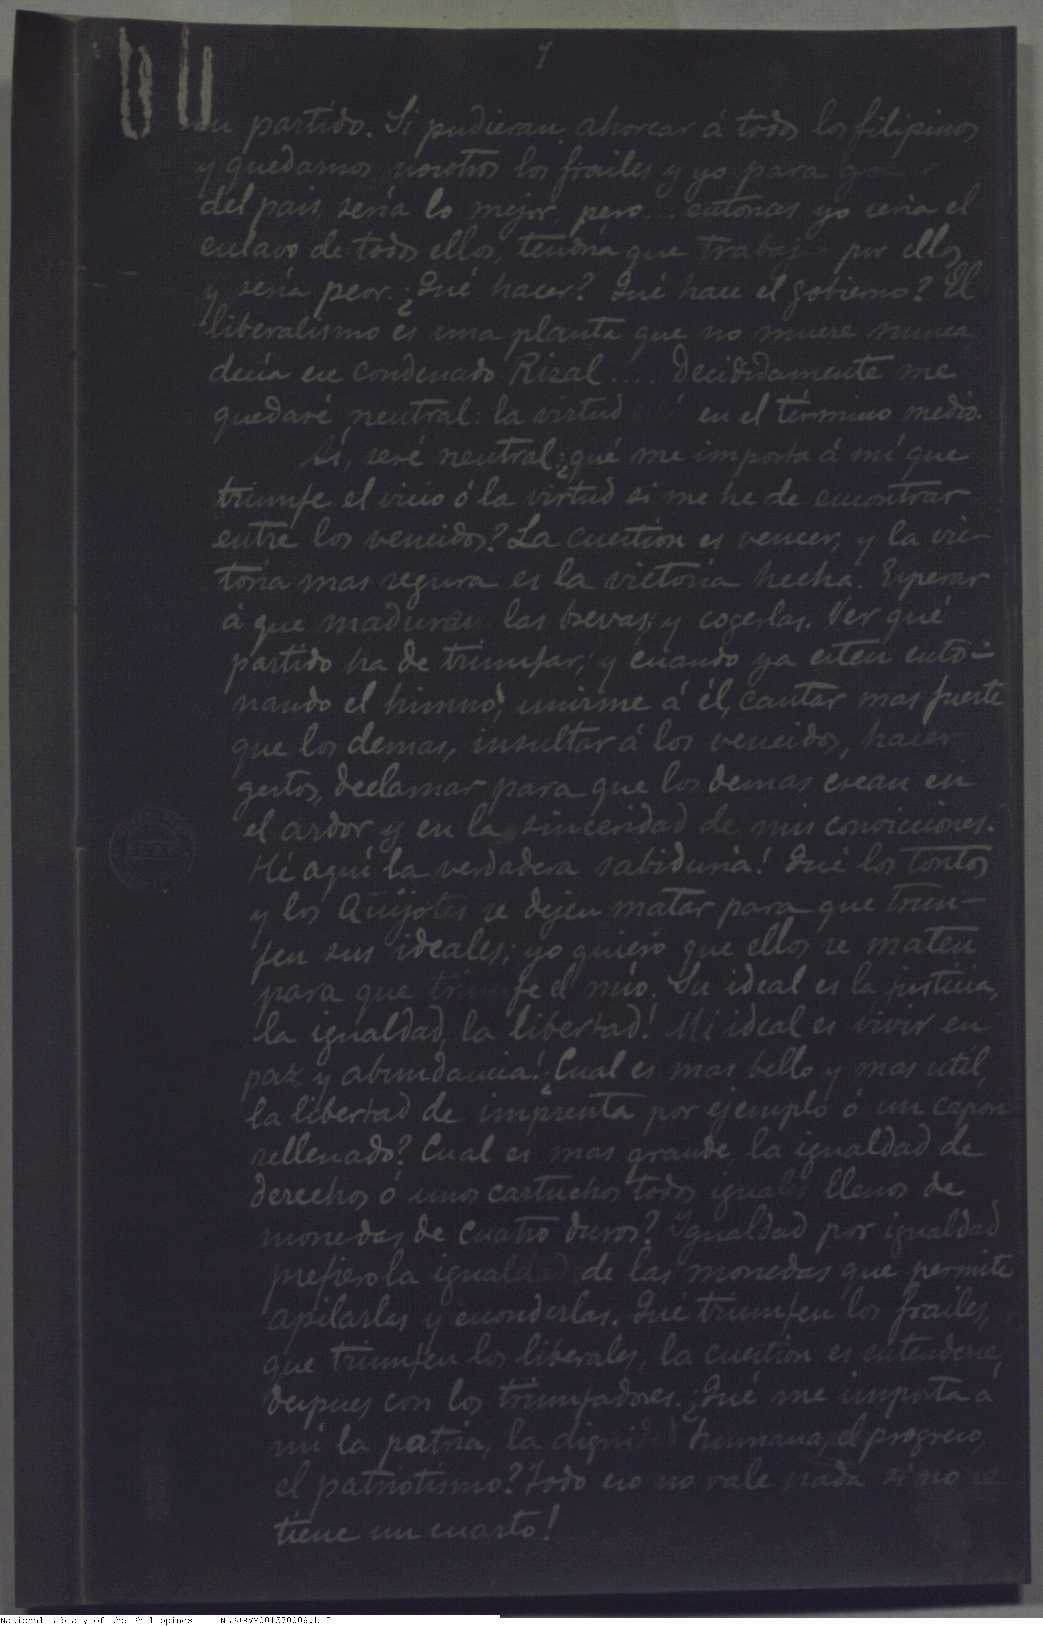 7
su partido. Si pudieran ahorcar á todos los filipinos
y quedarnos nosotros los frailes y yo para
del pais, sería lo mejor, pero... entonces yo seria el
esclavo de todos ellos, tendría que trabaj por ellos
y sería peor. ¿Qué hacer? Qué hace el gobierno? El
liberalismo es una planta que no muere nunca
decía ese condenado Rizal .... Decididamente me
quedaré neutral: la virtud está en el término medio.
Sí, seré neutral; ¿qué me importa á mí que
triunfe el vicio ó la virtud si me he de encontrar
entre los vencidos? La cuestion es vencer, y la vic-
toria mas segura es la victoria hecha. Esperar
á que maduren las brevas; y cogerlas. Ver qué
partido ha de triunfar; y cuando ya esten ento-
nando el himno, unirme á él, cantar mas fuerte
que los demas, insultar á los vencidos, hacer
gestos, declamar para que los demas crean en
el ardor y en la sinceridad de mis convicciones.
Hé aquí la verdadera sabiduría! Qué los tontos
y los Quijotes se dejen matar para que triun-
fen sus ideales; yo quiero que ellos se maten
para que triunfe el mío. Su ideal es la justicia,
la igualdad, la libertad! Mi ideal es vivir en
paz y abundancia! ¿Cual es mas bello y mas util,
la libertad de imprenta por ejemplo ó un capon
rellenado? Cual es mas grande, la igualdad de
derechos ó unos cartuchos todos iguales llenos de
monedas de cuatro duros? Igualdad por igualdad
prefiero la igualdad de las monedas que permite
apilarlas y esconderlas. Qué triunfen los frailes,
que triunfen los liberales, la cuestion es entenderse
despues con los triunfadores. ¿Qué me importa á
mí la patria, la dignidad humana, el progreso,
el patriotismo? Todo eso no vale nada si no se
tiene un cuarto!
National Library of the Philippines